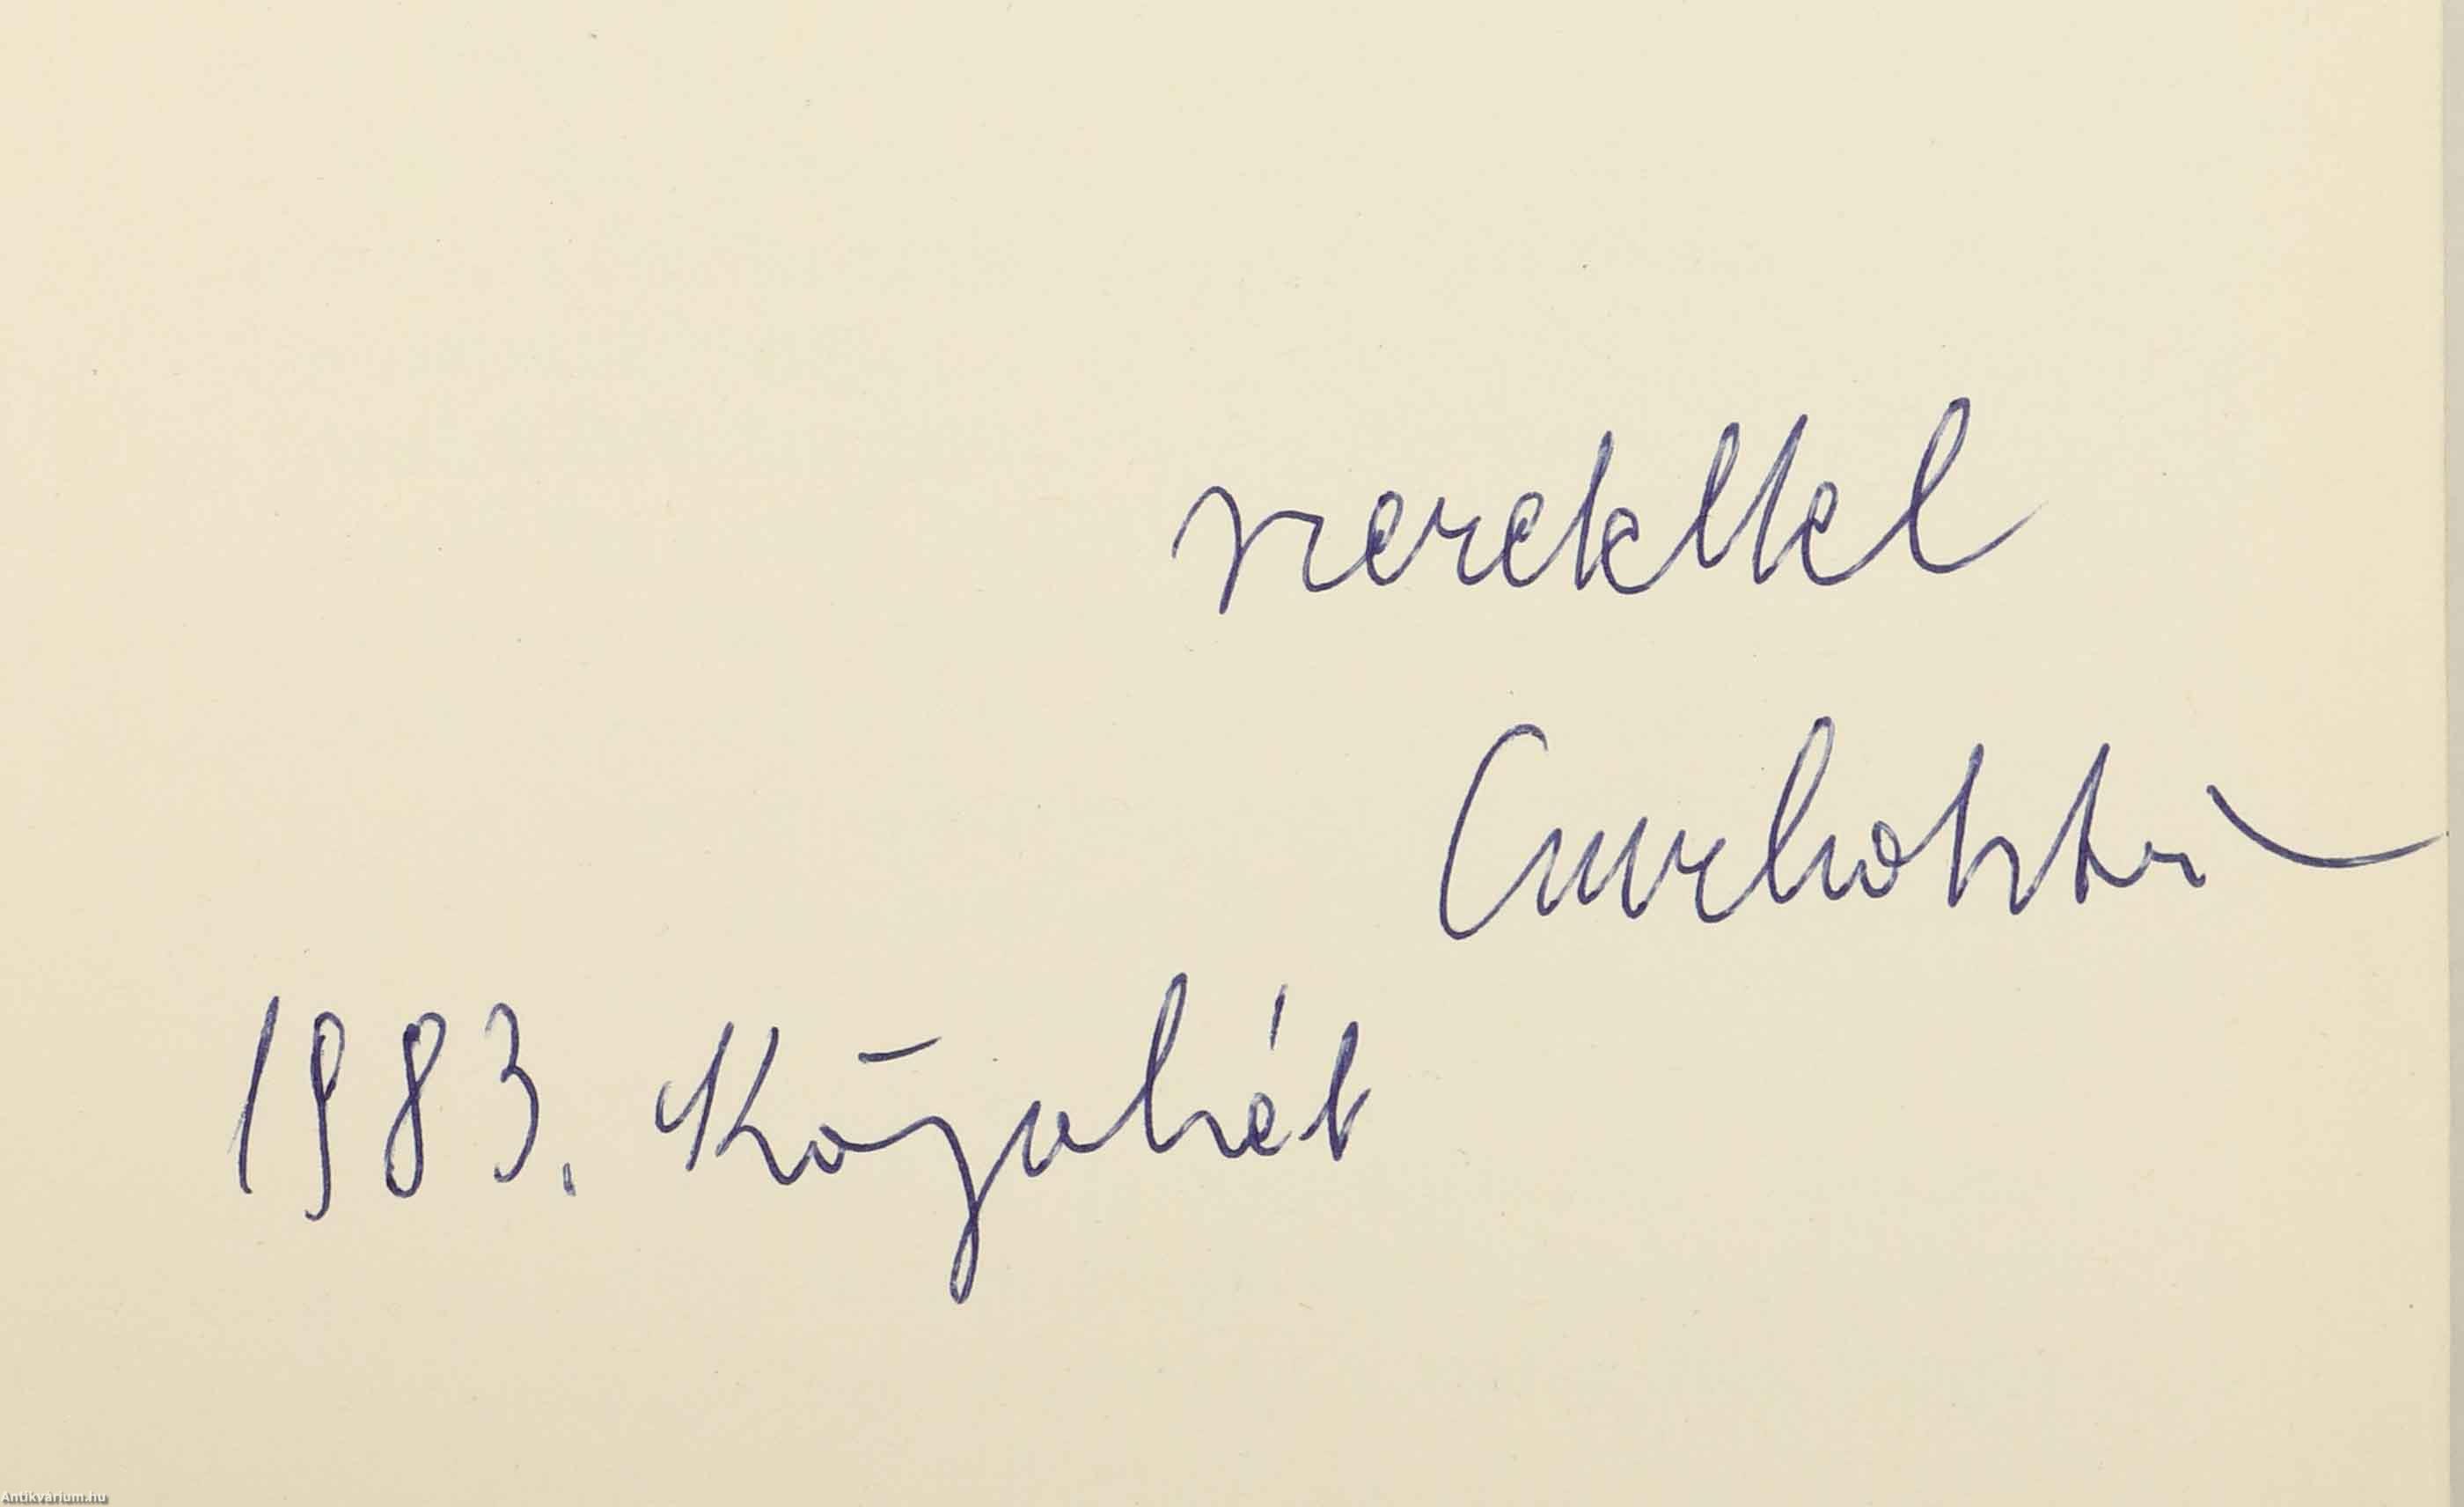 szeretettel
Csurka István
1983. Könyvhét
Antikvárium.hu